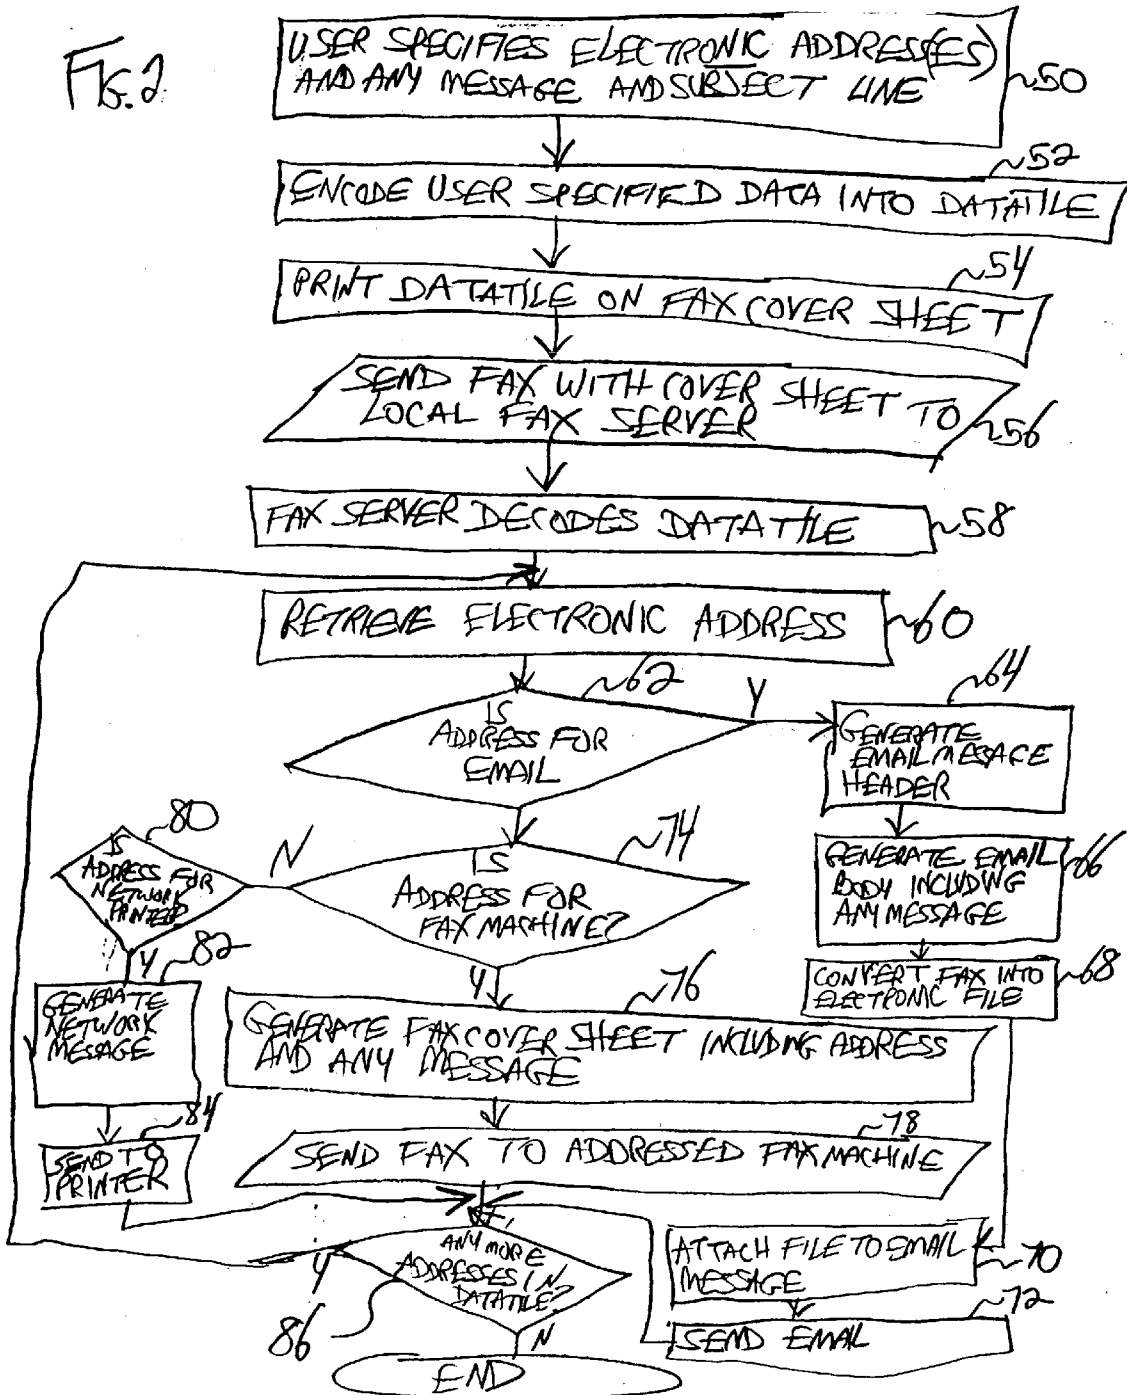 FIG. 2
USER SPECIFIES ELECTRONIC ADDRESS(ES)
AND ANY MESSAGE AND SUBJECT LINE
50
52
ENCODE USER SPECIFIED DATA INTO DATATILE
54
PRINT DATATILE ON FAX COVER SHEET
SEND FAX WITH COVER SHEET TO
LOCAL FAX SERVER
56
FAX SERVER DECODES DATATILE
58
RETRIEVE ELECTRONIC ADDRESS
60
62
Y
IS
ADDRESS FOR
EMAIL
64
GENERATE
EMAIL MESSAGE
HEADER
GENERATE EMAIL
BODY INCLUDING
ANY MESSAGE
66
CONVERT FAX INTO
ELECTRONIC FILE
68
74
IS
ADDRESS FOR
FAX MACHINE?
N
80
IS
ADDRESS FOR
NETWORK
PRINTER?
Y
82
GENERATE
NETWORK
MESSAGE
84
SEND TO
PRINTER
Y
76
GENERATE FAX COVER SHEET INCLUDING ADDRESS
AND ANY MESSAGE
78
SEND FAX TO ADDRESSED FAX MACHINE
ATTACH FILE TO EMAIL
MESSAGE
70
72
SEND EMAIL
ANY MORE
ADDRESSES IN
DATATILE?
Y
86
N
END